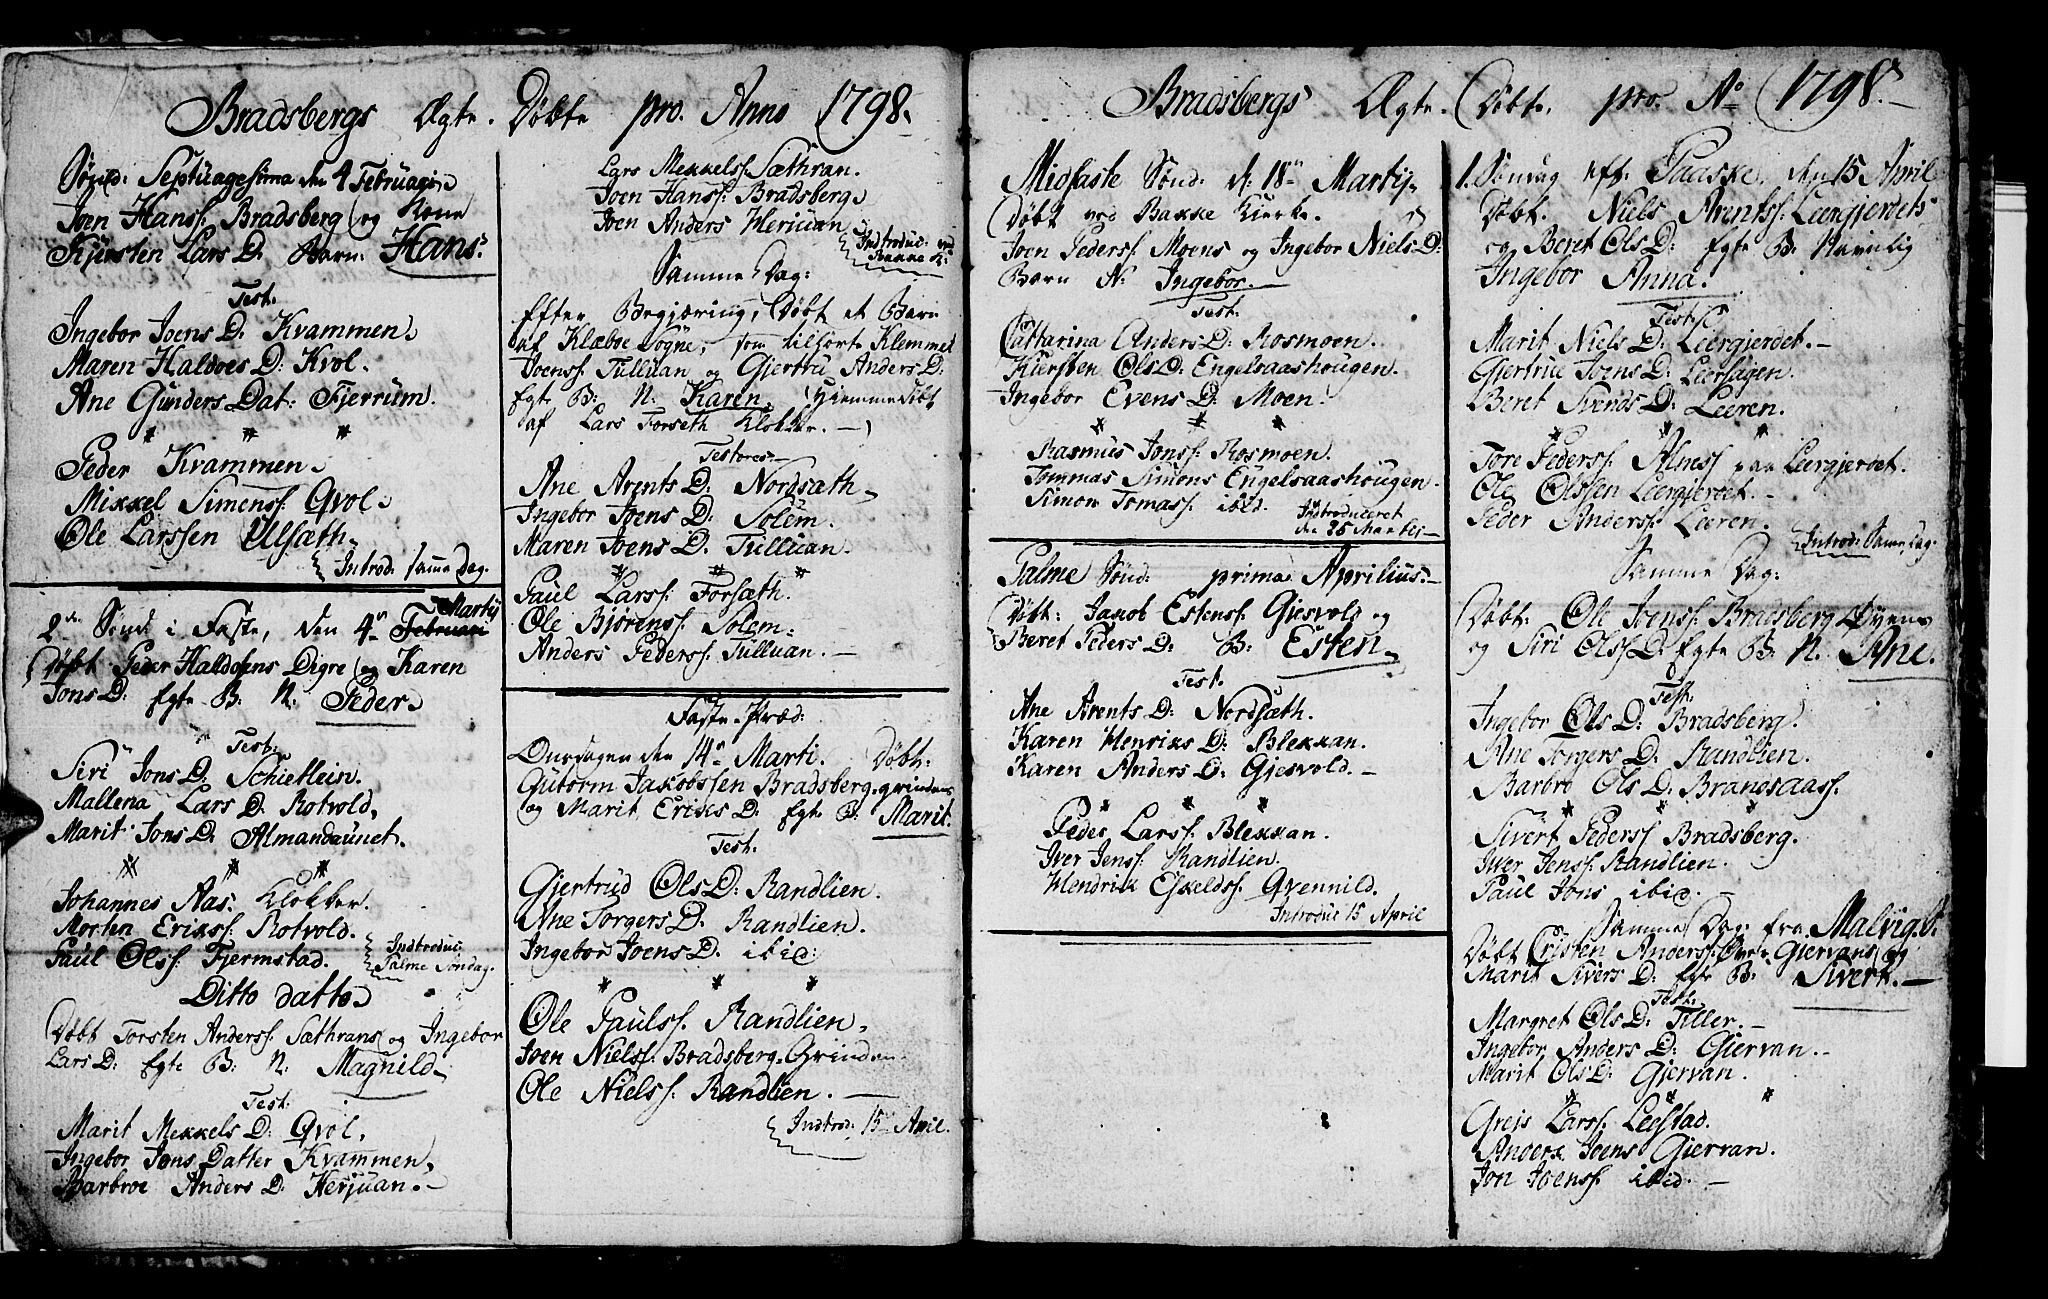 Bradsbergs Ægte. Döbte pro. Anno 1798.
Sönd: Septuagesima den 4 Februarij
Joen Hanss: Bradsberg og Kone
Kjersten Lars D. Barn: Hans.
Test:
Ingebor Joens D. Kvammen.
Maren Haldoes D: Kvol.
Ane Gunders Dat: Fjerrum.
Peder Kvammen.
Mikkel Simenss. Qvol.
Ole Larssen Ulsæth.
Introd: samme Dag.
2den Sönd: i Faste, den 4de Februari Martij
Döbt Peder Haldosens Digre og Karen
Jons D: Egte B: N: Peder.
Test:
Siri Jons D: Schietlein.
Mallena Lars D. Rotvold.
Marit Jons D. Almandaunet.
Johannes Aas. Klokker.
Morten Erikss: Rotvold.
Paul Olss: Fjermstad.
Indtroduc:
Palme Söndag.
Ditto datto
Döbt Torsten Anderss. Sæthrans og Ingebor
Lars D: Egte B: N: Magnild
Test:
Marit Mekkels D: Qvol.
Ingebor Jons Datter Kvammen.
Barbroe Anders D. Herjuan.
Lars Mekkelss. Sæthran.
Joen Hanss: Bradsberg
Joen Anders Heriuan
Indtroduc: ved
Bakke K:
Samme Dag:
Efter Begjæring, Döbt et Barn
af Klæboe Sogne, som tilhörte Klemmet
Joenss: Tulluan og Gjertru Anders D:
Egte B: N. Karen. Hjemmedöbt
af Lars Forseth Klokker.
Testores
Ane Arents D: Nordsæth
Ingebor Joens D: Solem.
Maren Joens D. Tulluan.
Paul Larss: Forsæth.
Ole Bjørenss. Solem.
Anders Pederss. Tulluan.
Faste-Præd:
Onsdagen den 14de Marti. Döbt:
Gutorm Jakobssen Bradsberg-grinden
og Marit Eriks D: Egte B: Marit.
Test.
Gjertrud Ols D: Randlien.
Ane Torgers D. Randlien.
Ingebor Joens D. ibid:
Ole Paulss. Randlien.
Joen Nielss: Bradsberg-Grinden
Ole Nielss: Randlien.
Indtrod: 15 April.
Bradsbergs Ægte. Döbte. pro. Ao 1798.
Midfaste Sönd: d. 18de Martij
Döbt ved Bakke Kierke.
Joen Pederss. Moens og Ingebor Niels D:
Barn N. Ingebor.
Test.
Cattarina Anders D: Rosmoen.
Kiersten Ols D: Engelsaashougen.
Ingebor Evens D: Moen.
Rasmus Jonss. Rosmoen.
Tommas Simons Engelsaashougen.
Simon Tomass. ibid.
Indtroduceret
den 25 Martij
Palme Sönd: prima Aprilius.
Döbt: Jakob Estenss. Gjesvold og
Beret Peders D: B: Esten
Test.
Ane Arents D: Nordsæth.
Karen Henriks D: Blekkan.
Karen Anders D: Gjesvold.
Peder Larss: Blekkan.
Iver Jenss. Randlien.
Hendrik Eskeldss. Qvennild.
Introduc 15 April
1. Söndag eft: Paaske. den 15 April
Döbt. Niels Arentss: Leergjerdets
og Beret Ols D: Egte B: Navnlig
Ingebor Anna.
Test:
Marit Niels D: Leergjerdet.
Gjertrue Joens D: Leersagen.
Beret Svends D: Leeren.
Tore Pederss. Almss paa Leergjerdet.
Ole Olssen Leergjerdet.
Peder Anderss. Leeren.
Introd: Samme Dag.
Samme Dag:
Döbt: Ole Joenss. Bradsberg
og Siri Ols D: Egte B: N. Ane.
Test.
Ingebor Ols D: Bradsberg.
Ane Torgers D. Randlien.
Barbro Ols D: Brandsaass.
Sivert Pederss Bradsberg.
Iver Jenss: Randlien.
Paul Jons ibid.
Samme Dag: fra Malvig.
Döbt Cristen Anderss: Gjervans og
Marit Sivers D: Egte B: Sivert.
Test:
Margret Ols D: Tiller.
Ingebor Anders D: Giervan.
Marit Ols D: Giervan.
Greis Larss: Leistad.
Anders Joens Giervan.
Jon Joenss: ibid.